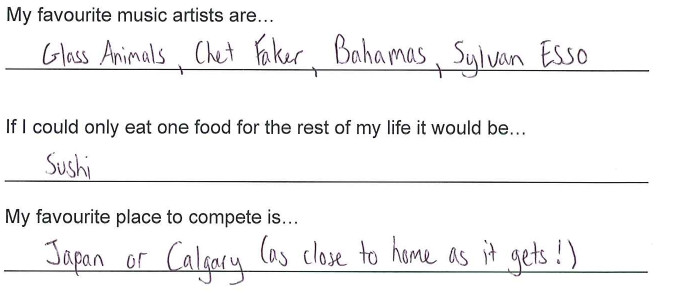 My favourite music artists are...
Glass Animals, Chet Faker, Bahamas, Sylvan Esso
If I could only eat one food for the rest of my life it would be...
Sushi
My favourite place to compete is...
Japan or Calgary (as close to home as it gets!)